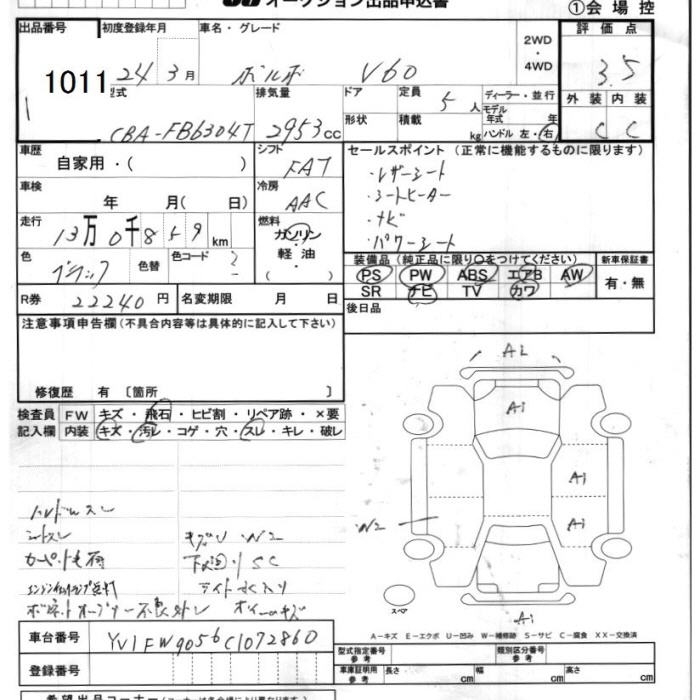 オークション出品申込書
①会場控
出品番号 初度登録年月 車名・グレード 2WD・4WD 評価点
1011 24年3月 ボルボ V60 3.5
型式 排気量 ドア 定員 ディーラー・並行 外装 内装
CBA-FB6304T 2953cc 形状 積載 5人 kg モデル年式 年 ハンドル 左・右 C C
車歴 シフト セールスポイント(正常に機能するものに限ります)
自家用・( ) FAT ・レザーシート
車検 冷房 ・シートヒーター
年 月( 日) AAC ・ナビ
走行 燃料 ・パワーシート
13万0千859km ガソリン・軽油・( )
色 色替 色コード 装備品(純正品に限り○をつけてください) 新車保証書
ブラック PS PW ABS エアB AW 有・無
R券 22240円 名変期限 月 日 SR ナビ TV カワ
注意事項申告欄(不具合内容等は具体的に記入して下さい) 後日品
修復歴 有 〔箇所 〕
検査員 FW キズ・飛石・ヒビ割・リペア跡・×要
記入欄 内装 キズ・汚レ・コゲ・穴・スレ・キレ・破レ
A2
A1
A1
A1
W2
ハンドルスレ
シートスレ キズU・W2
下廻り SC
スペア
A1
A-キズ E-エクボ U-凹み W-補修跡 S-サビ C-腐食 XX-交換済
車台番号 YV1FW9056C1072860 型式指定番号 参考 類別区分番号 参考
登録番号 車庫証明用 参考 長さ cm 幅 cm 高さ cm
希望出品コーナー